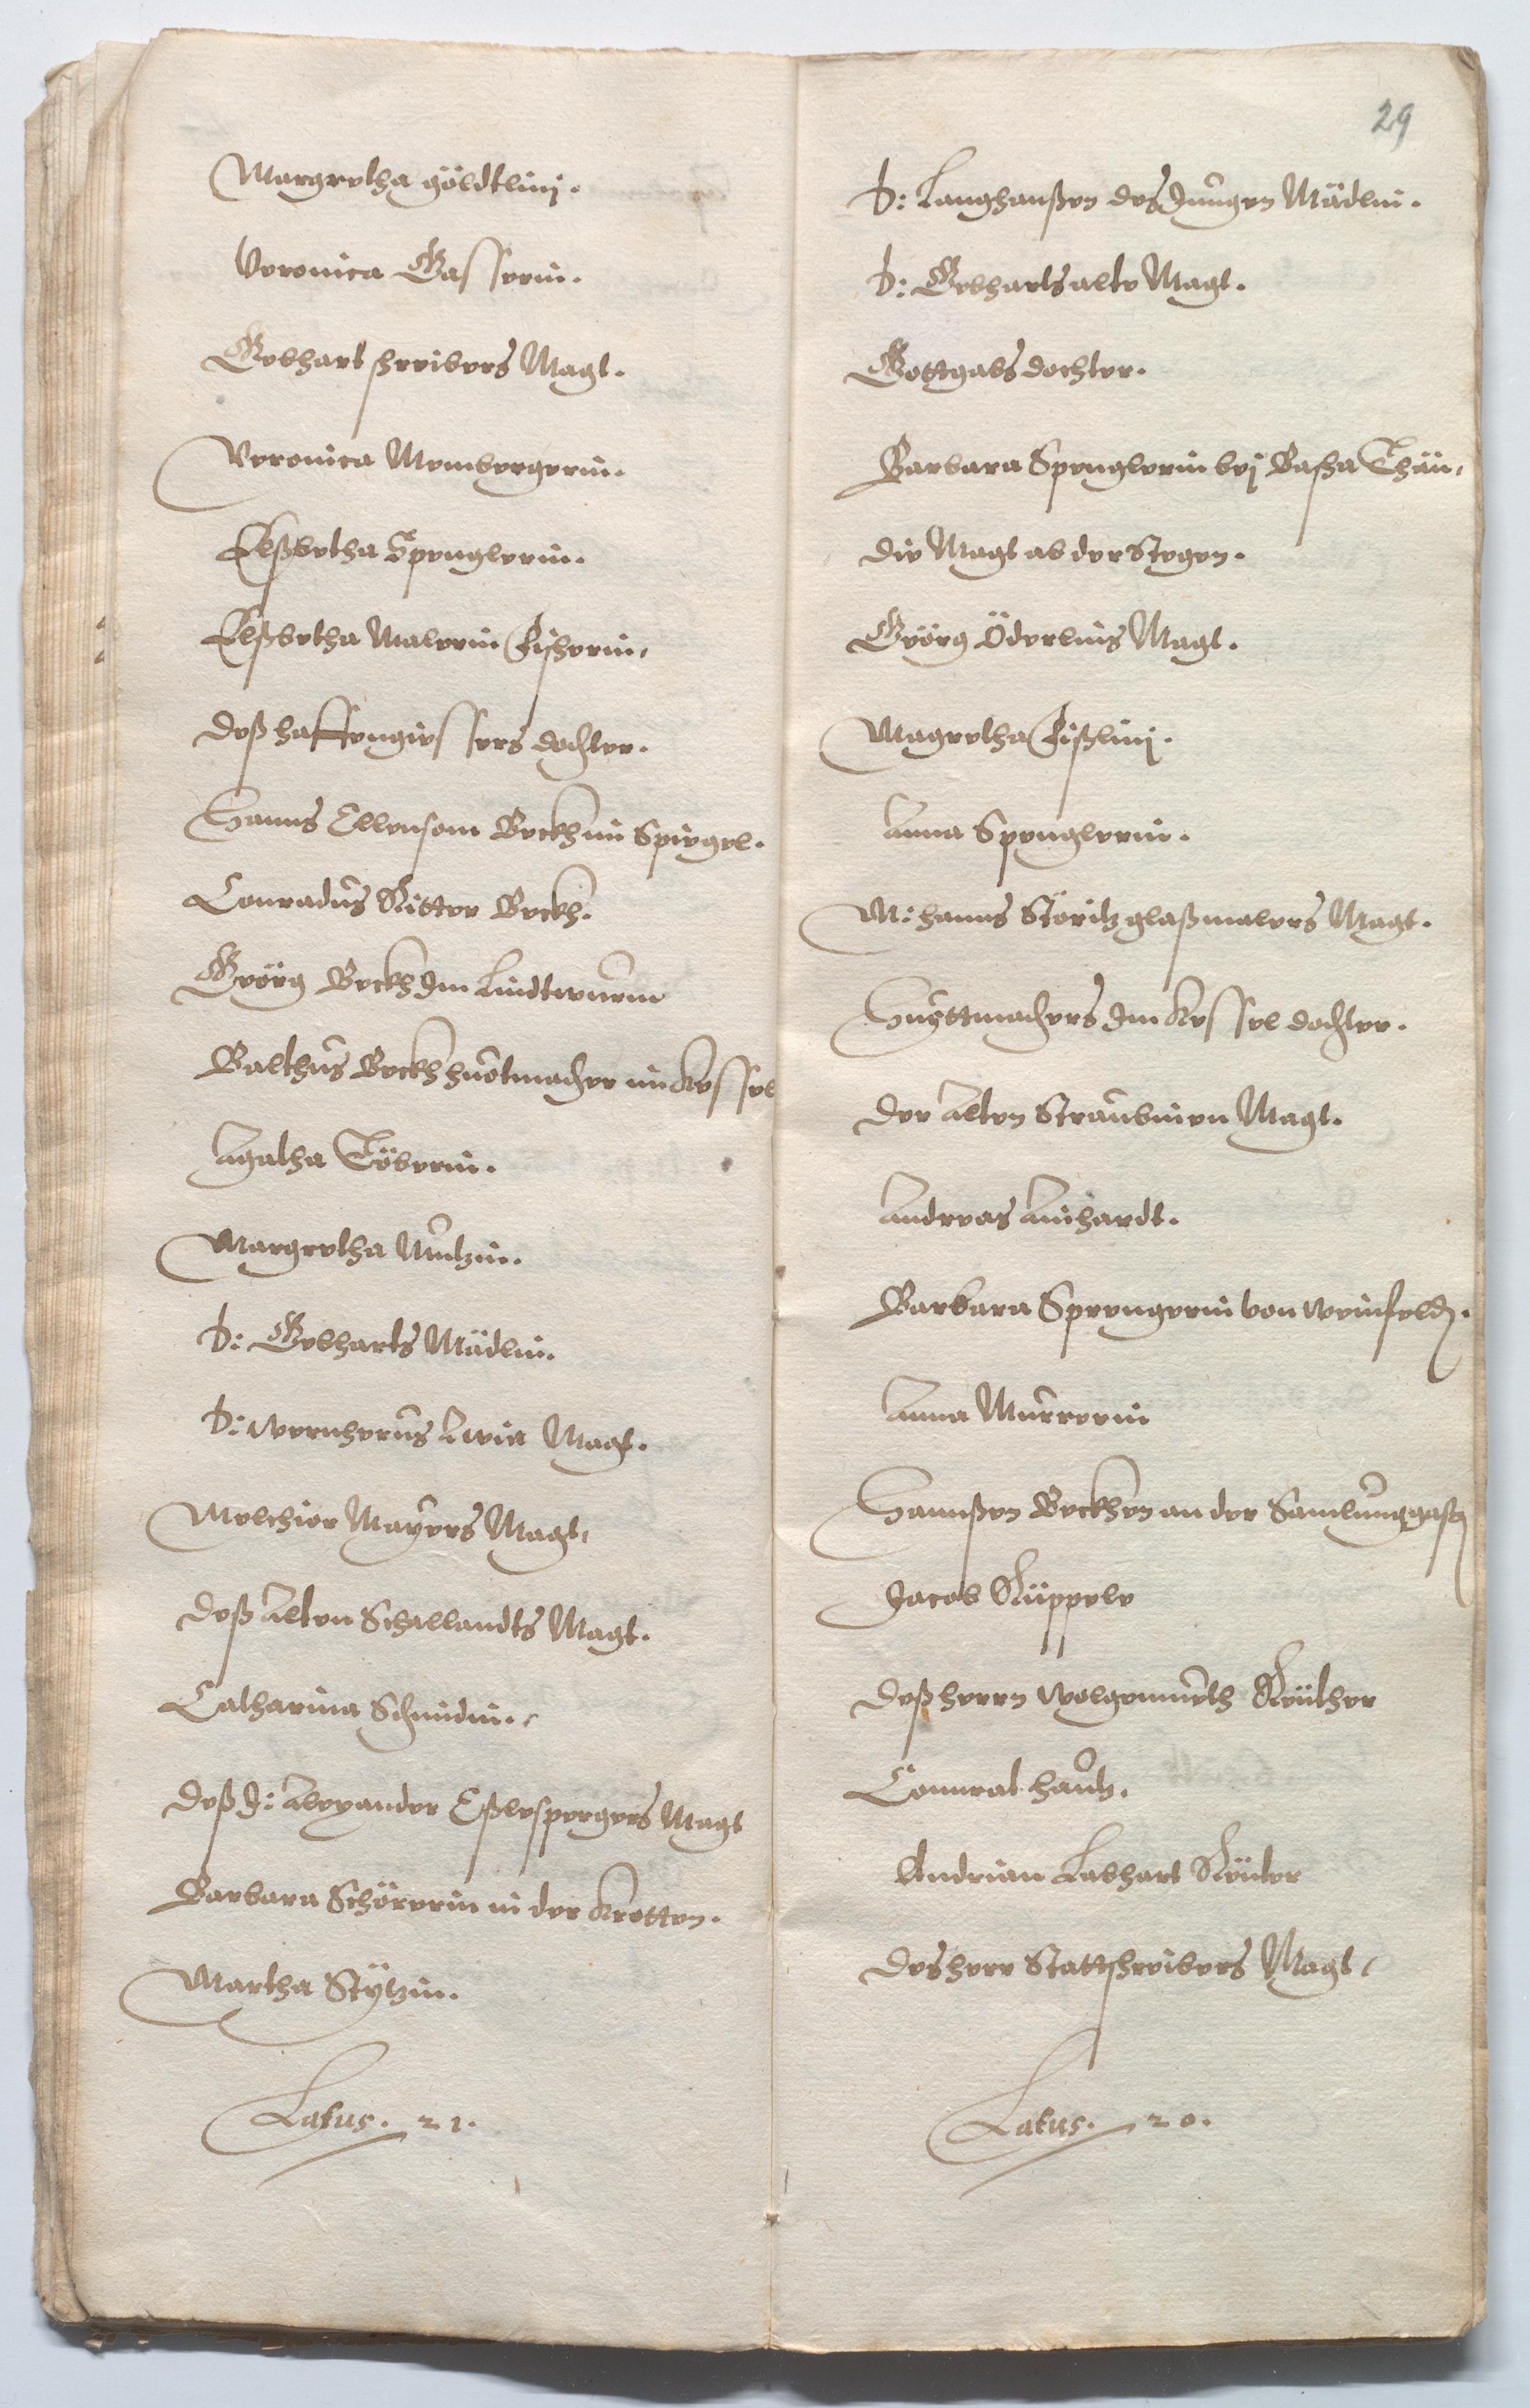 Margretha göldtlinj.
Veronica Gasserin.
Gebhart schreibers Magt.
Veronica Membergerin.
Elßbetha Spenglerin.
Elßbetha Malerin Fischerin,
deß haffengiessers dochter.
Hanns Ellensom Beckh im Spiegel.
Conradus Ritter Beckh.
Geörg Beckh Im Lindtwurm
Balthus Beckh huotmacher im Kessel
Agatha Töberin.
Margretha Mutzin.
D: Gebharts Mädlin.
D: Wernherus Magt.
Melchior Mayers Magt,
deß Alten Schallandts Magt.
Catharina Schmidin.
deß J: Alexander Eßlespergers Magt
Barbara Schörerin in der Krotten.
Martha Stÿtzin.
Latus. 21.
29
D: Langhanßen des Jungen Mädlin.
D: Gebharts alte Magt.
Gottgabs dochter.
Barbara Spenglerin bej Bascha Thün,
die Magt ab der Stegen.
Geörg Öderlins Magt.
Magretha Fischlinj.
Anna Spenglerin.
M: hanns Störitz glaßmalers Magt.
Huettmachers Im Kessel dochter.
der Alten Straubinen Magt.
Andreas Ainhardt.
Barbara Sprengerin von Weinfeld.
Anna Murrerin
Hannßen Beckhen an der Samlunggaß
Jacob Rüppele
deß herrn Wolgemuth Reüther
Connrat hautz.
Andrian Labhart Reüter
des herr Stattschreibers Magt,
Latus. 20.